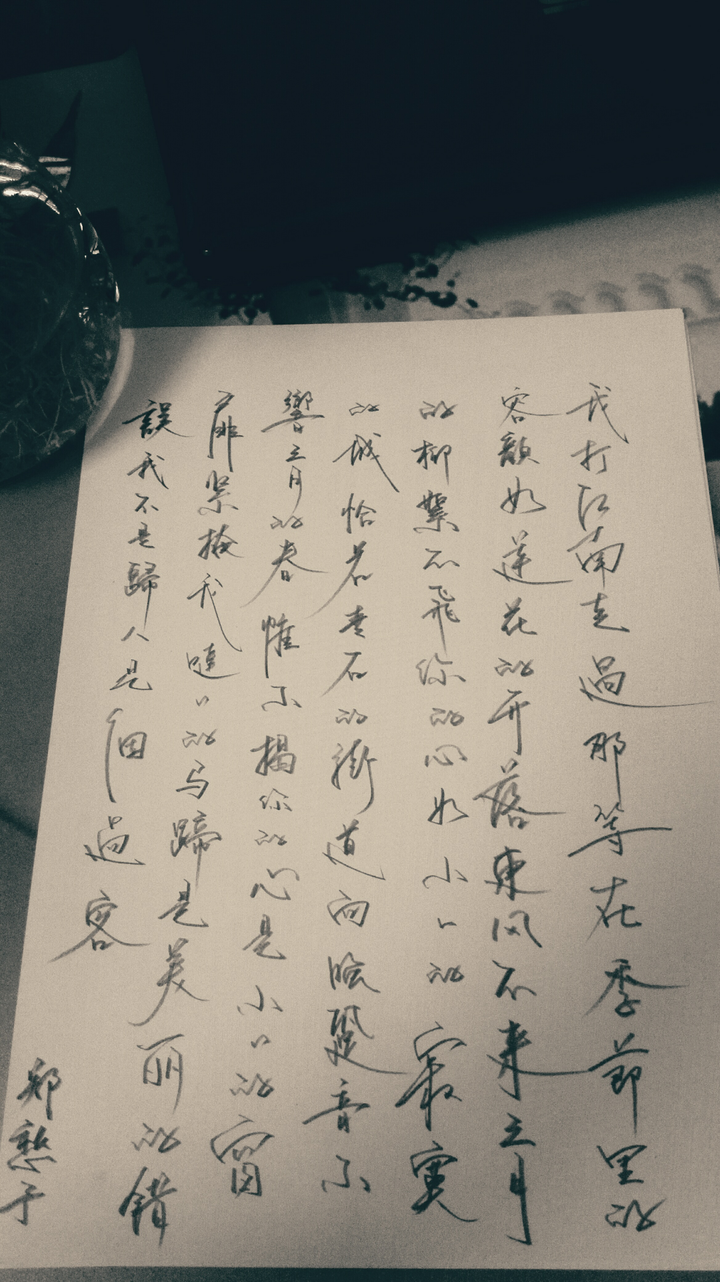 我打江南走過那等在季節里的
容顏如蓮花的开落東风不来三月
的柳絮不飛你的心如小々的寂寞
的城恰若青石的街道向晚跫音不
響三月的春帷不揭你的心是小々的窗
扉紧掩我噠々的马蹄是美丽的错
誤我不是歸人是個過客
郑愁予